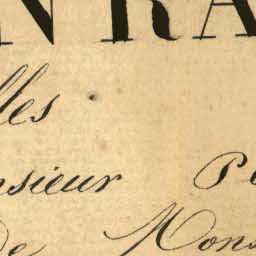 NRA
lles
nsieur P
de Mons